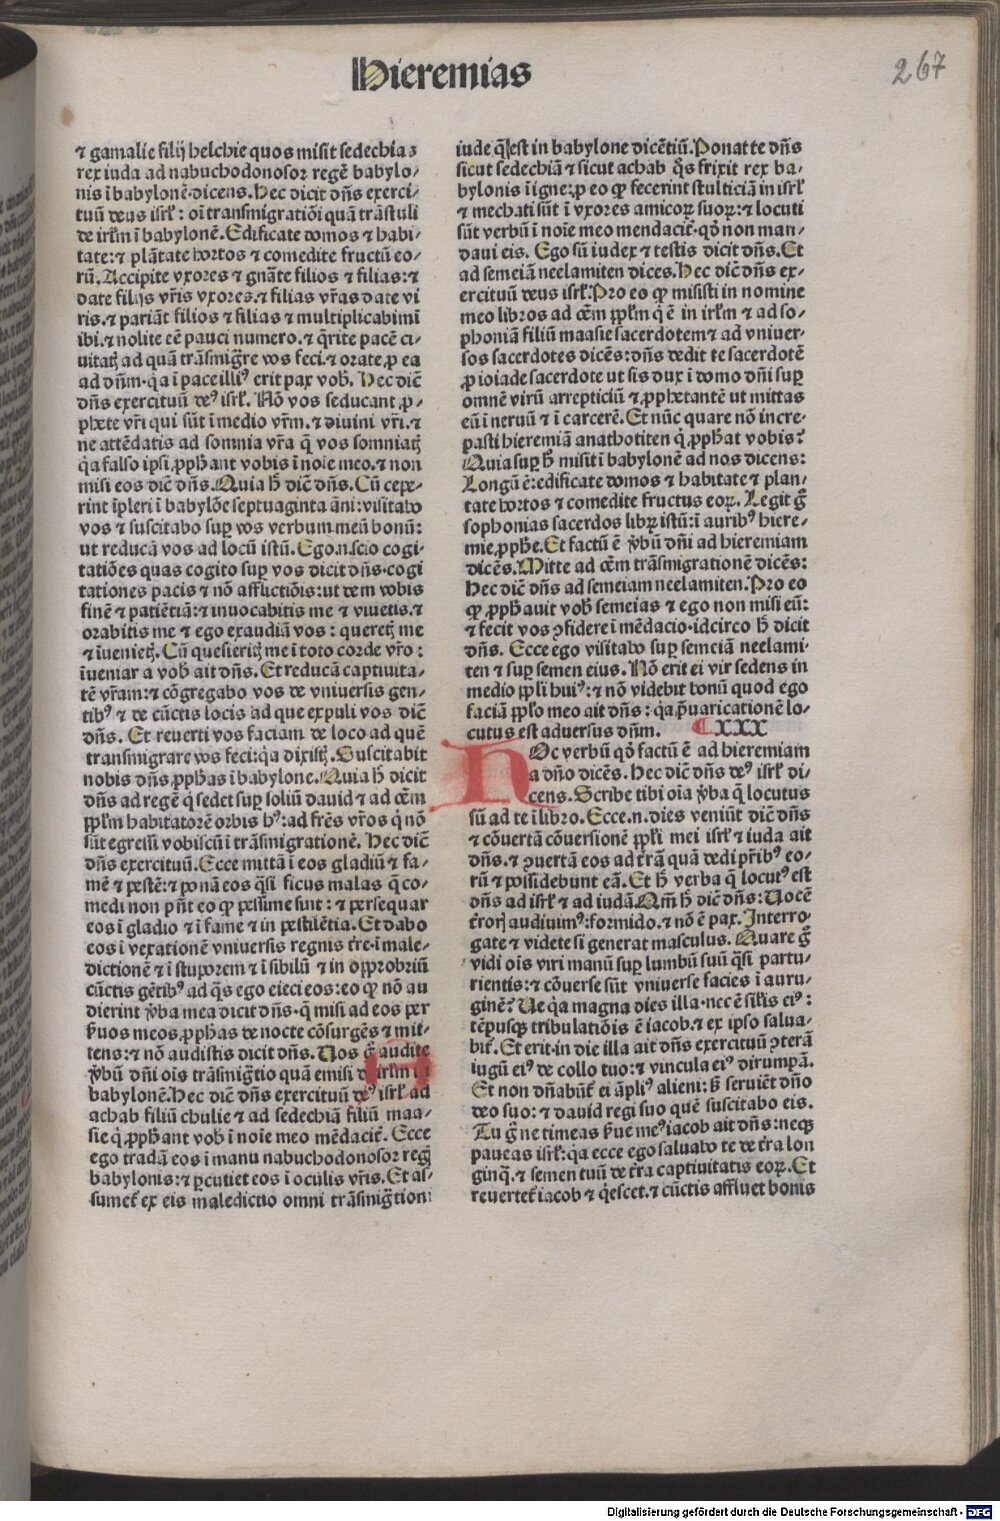 Hieremias
267
⁊ gamalie filij helchie quos misit sedechias
rex iuda ad nabuchodonosor regē babylo-
nis ī babylonē·dicens. Hec dicit dñs exerci-
tuū deus isrl̄: oī transmigratiōi quā trāstuli
de irl̄m ī babylonē. Edificate domos ⁊ habi-
tate: ⁊ plātate hortos ⁊ comedite fructū eo-
rū. Accipite vxores ⁊ gnāte filios ⁊ filias: ⁊
date filijs vr̄is vxores. ⁊ filias vr̄as date vi
ris. ⁊ pariāt filios ⁊ filias ⁊ multiplicabimī
ibi. ⁊ nolite eē pauci numero. ⁊ q̄rite pacē ci-
uitatꝭ ad quā trāsmigr̄e vos feci. ⁊ orate ꝓ ea
ad dñm· q̇a ī pace illiꝰ erit pax vob̄. Hec dic̄
dñs exercituū deꝰ isrl̄. Nō vos seducant ꝓ-
phete vr̄i qui sūt ī medio vr̄m. ⁊ diuini vr̄i. ⁊
ne attēdatis ad somnia vr̄a q̄ vos somniatꝭ
q̇a falso ipsi ꝓph̄ant vobis ī noīe meo. ⁊ non
misi eos dic̄ dñs. Quia h̄ dic̄ dñs. Cū cepe-
rint īpleri ī babylōe septuaginta āni: visitabo
vos ⁊ suscitabo suꝑ vos verbum meū bonū:
ut reducā vos ad locū istū. Ego.n.scio cogi-
tatiōes quas cogito suꝑ vos dicit dñs· cogi
tationes pacis ⁊ nō afflictiōis: ut dem vobis
finē ⁊ patiētiā: ⁊ inuocabitis me ⁊ viuetis. ⁊
orabitis me ⁊ ego exaudiā vos: queretꝭ me
⁊ īuenietꝭ. Cū quesieritꝭ me ī toto corde vr̄o:
īueniar a vob̄ ait dñs. Et reducā captiuita-
tē vr̄am: ⁊ cōgregabo vos de vniuersis gen-
tibꝰ ⁊ de cūctis locis ad que expuli vos dic̄
dñs. Et reuerti vos faciam de loco ad quē
transmigrare vos feci: q̇a dixistꝭ. Suscitabit
nobis dñs ꝓph̄as ī babylone. Quia h̄ dicit
dñs ad regē q̇ sedet suꝑ soliū dauid ⁊ ad oēm
ppl̄m habitatorē orbis hꝰ: ad fr̄es vr̄os q̇ nō
sūt egressi vobiscū ī trāsmigrationē. Hec dic̄
dñs exercituū. Ecce mittā ī eos gladiū ⁊ fa-
mē ⁊ pestē: ⁊ ponā eos q̄si ficus malas q̄ co-
medi non pn̄t eo ꝙ pessime sint: ⁊ persequar
eos ī gladio ⁊ ī fame ⁊ in pestilētia. Et dabo
eos ī vexationē vniuersis regnis tr̄e· ī male-
dictionē ⁊ ī stuporem ⁊ ī sibilū ⁊ in opprobriū
cūctis gētibꝰ ad q̄s ego eieci eos: eo ꝙ nō au
dierint v̄ba mea dicit dñs· q̄ misi ad eos per
ẜuos meos ꝓph̄as de nocte cōsurgēs ⁊ mit-
tens: ⁊ nō audistis dicit dñs. Uos g̊ audite
v̄bū dñi oīs trāsmigr̄tio quā emisi d irl̄m ī
babylonē. Hec dic̄ dñs exercituū deꝰ isrl̄ ad
achab filiū chulie ⁊ ad sedechiā filiū maa-
sie q̇ ꝓph̄ant vob̄ ī noīe meo mēdacit̄. Ecce
ego tradā eos ī manu nabuchodonosor regꝭ
babylonis: ⁊ ꝑcutiet eos ī oculis vr̄is. Et as-
sumet̄ ex eis maledictio omni trāsmigr̄tioni
iude q̄ est in babylone dicētiū. Ponat te dñs
sicut sedechiā ⁊ sicut achab q̄s frixit rex ba-
bylonis ī igne: ꝓ eo ꝙ fecerint stulticiā in isrl̄
⁊ mechati sūt ī vxores amicoꝝ suoꝝ: ⁊ locuti
sūt verbū ī noīe meo mendacit̄· qd̄ non man-
daui eis. Ego sū iudex ⁊ testis dicit dñs. Et
ad semeiā neelamiten dices. Hec dic̄ dñs ex-
ercituū deus isrl̄. Pro eo ꝙ misisti in nomine
meo libros ad oēm ppl̄m q̇ ē in irl̄m ⁊ ad so-
phoniā filiū maasie sacerdotem ⁊ ad vniuer-
sos sacerdotes dicēs: dñs dedit te sacerdotē
ꝓ ioiade sacerdote ut sis dux ī domo dñi suꝑ
omnē virū arrepticiū ⁊ ꝓphetantē ut mittas
eū ī neruū ⁊ ī carcerē. Et nūc quare nō incre-
pasti hieremiā anathotiten q̇ ꝓph̄at vobis?
Quia suꝑ h̄ misit ī babylonē ad nos dicens:
Longū ē: edificate domos ⁊ habitate ⁊ plan-
tate hortos ⁊ comedite fructus eoꝝ. Legit g̊
sophonias sacerdos libꝝ istū: ī auribꝰ hiere-
mie ꝓph̄e. Et factū ē v̄bū dñi ad hieremiam
dicēs. Mitte ad oēm trāsmigrationē dicēs:
Hec dic̄ dñs ad semeiam neelamiten. Pro eo
ꝙ ꝓph̄auit vob̄ semeias ⁊ ego non misi eū:
⁊ fecit vos ꝯfidere ī mēdacio· idcirco h̄ dicit
dñs. Ecce ego visitabo suꝑ semeiā neelami-
ten ⁊ suꝑ semen eius. Nō erit ei vir sedens in
medio ppl̄i huiꝰ: ⁊ nō videbit bonū quod ego
faciā ppl̄o meo ait dñs: q̇a p̄uaricationē lo-
cutus est aduersus dñm. ¶XXX
Hoc verbū qd̄ factū ē ad hieremiam
a dño dicēs. Hec dic̄ dñs deꝰ isrl̄ di-
cens. Scribe tibi oīa v̄ba q̄ locutus
sū ad te ī libro. Ecce.n.dies veniūt dic̄ dñs
⁊ cōuertā cōuersionē ppl̄i mei isrl̄ ⁊ iuda ait
dñs. ⁊ ꝯuertā eos ad tr̄ā quā dedi pr̄ibꝰ eo-
rū ⁊ possidebunt eā. Et h̄ verba q̄ locutꝰ est
dñs ad isrl̄ ⁊ ad iudā. Qm̄ h̄ dic̄ dñs: Uocē
t̄roris audiuimꝰ: formido. ⁊ nō ē pax. Interro-
gate ⁊ videte si generat masculus. Quare g̊
vidi oīs viri manū suꝑ lumbū suū q̄si partu-
rientis: ⁊ cōuerse sūt vniuerse facies ī auru-
ginē? Ue q̇a magna dies illa· nec ē sil̄is eiꝰ:
tēpusqꝫ tribulatiōis ē iacob. ⁊ ex ipso salua-
bit̄. Et erit· in die illa ait dñs exercituū ꝯterā
iugū eiꝰ de collo tuo: ⁊ vincula eiꝰ dirumpā.
Et non dñabūt̄ ei āpliꝰ alieni: s̄ seruiēt dño
deo suo: ⁊ dauid regi suo quē suscitabo eis.
Tu g̊ ne timeas ẜue meꝰ iacob ait dñs: neqꝫ
paueas isrl̄: q̇a ecce ego saluabo te de tr̄a lon
ginq̄. ⁊ semen tuū de tr̄a captiuitatis eoꝝ. Et
reuertet̄ iacob ⁊ q̇escet. ⁊ cūctis affluet bonis
Digitalisierung gefördert durch die Deutsche Forschungsgemeinschaft - DFG